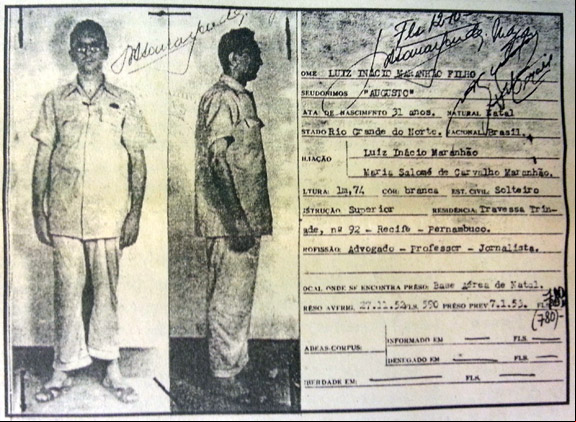 Fls 1210
OME LUIZ INÁCIO MARANHÃO FILHO
SEUDÔNIMOS "AUGUSTO"
ATA DE NASCIMENTO 31 anos. NATURAL Natal
STADO Rio Grande do Norte. NACIONAL Brasil.
ILIAÇÃO Luiz Inácio Maranhão
Maria Salomé de Carvalho Maranhão.
LTURA: 1m,74 CÔR: branca EST. CIVIL: Solteiro
STRUÇÃO: Superior RESIDÊNCIA: Travessa Trin-
ade, nº 92 - Recife - Pernambuco.
ROFISSÃO: Advogado - Professor - Jornalista.
OCAL ONDE SE ENCONTRA PRÊSO: Base Aérea de Natal.
RÊSO AVERIG. 27.11.52 FLS. 590 PRÊSO PREV. 7.1.53. FLS. 780
(780)-
ABEAS-CORPUS: INFORMADO EM FLS.
DENEGADO EM FLS.
IBERDADE EM: FLS.